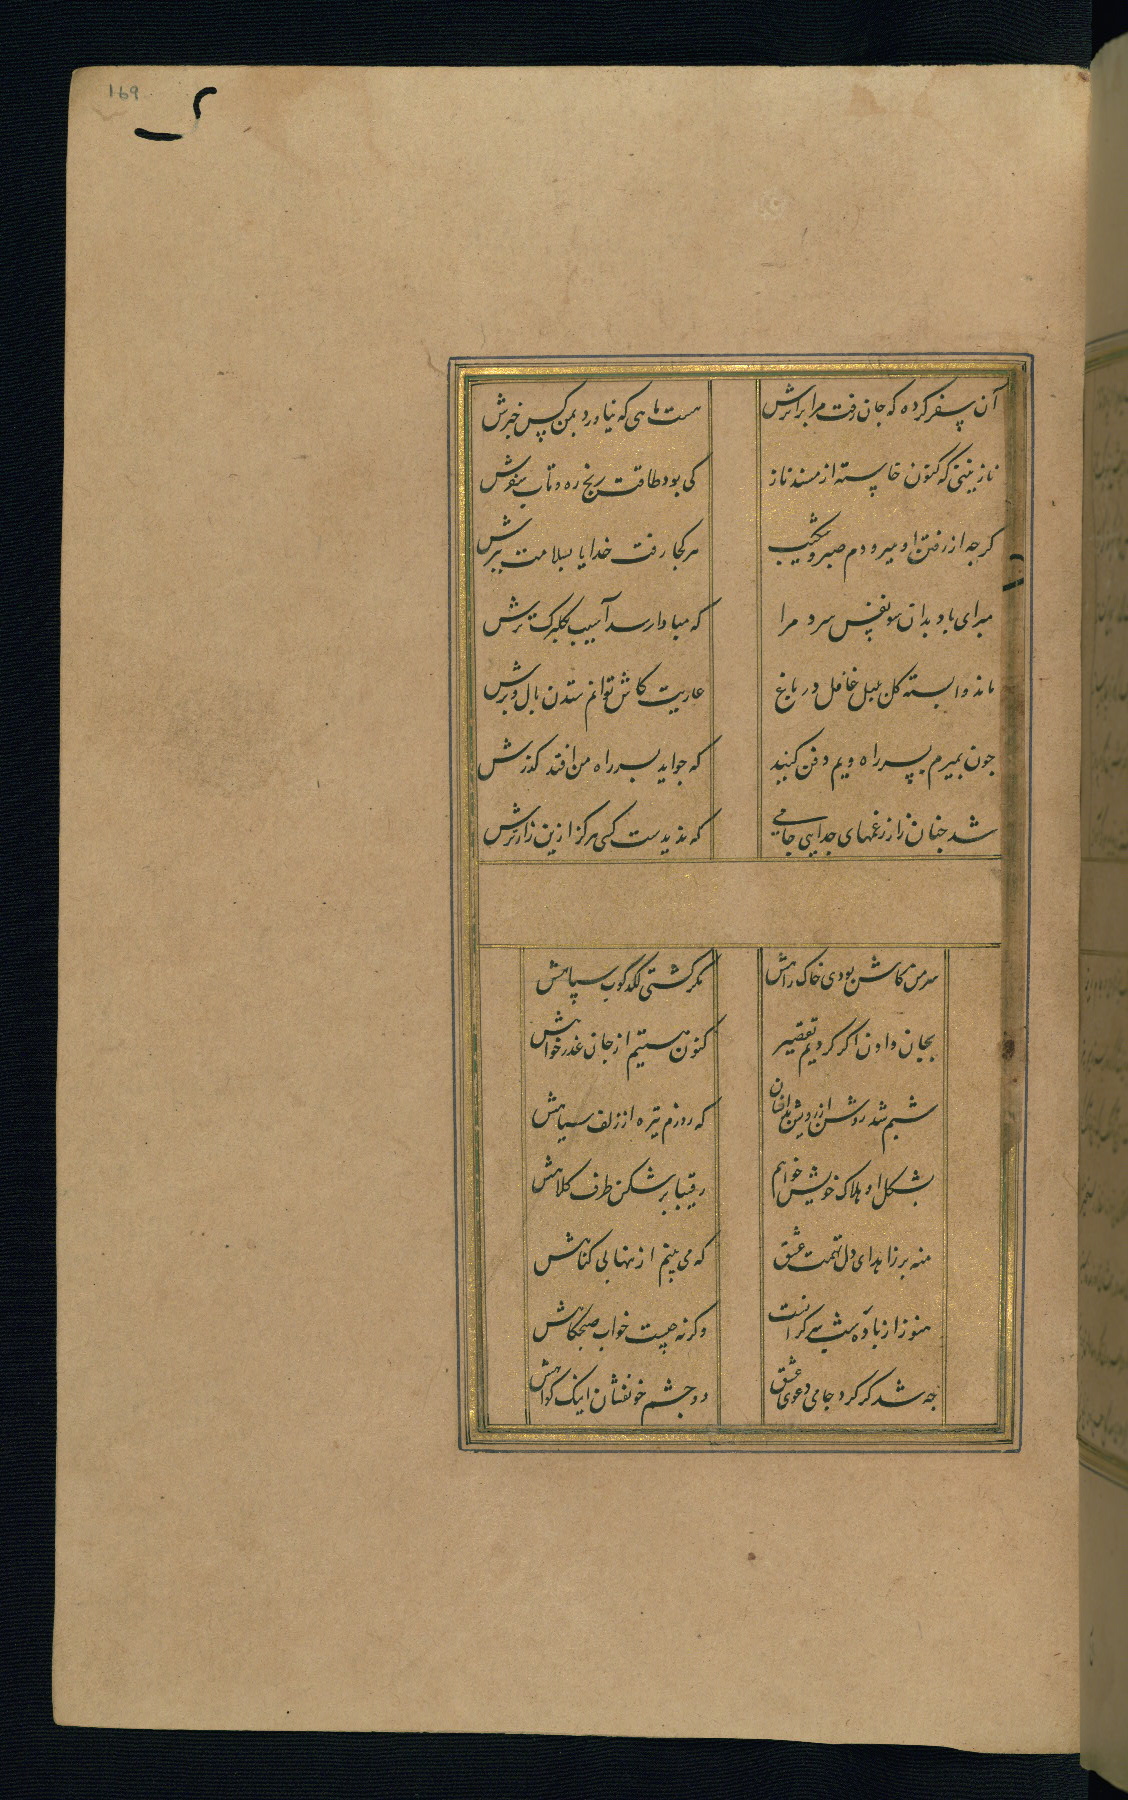 169
آن سفر کرده که جان رفت مرا بر اثرش
هست ماهی که نیاورد بمن کس خبرش
نازنینی که کنون خاسته از مسند ناز
کی بود طاقت رنج ره و تاب سفرش
کرجه از رفتن او میرودم صبر و شکیب
هر کجا رفت خدایا بسلامت ببرش
مبر ای باد بدان سو نفس سرد مرا
که مبادا رسد آسیب کلبرک ترش
ماند وابسته کل بلبل غافل در باغ
عاریت کاش توانم ستدن بال و پرش
جون بمیرم بسر راه ویم دفن کنید
که جو اید بسر راه من افتد کذرش
شد جنان زار ز غمهای جدایی جامی
که ندیدست کسی هرکز ازین زارترش
سر من کاش بودی خاک راهش
مکر کشتی لکدکوب سپاهش
بجان دادن اکر کردیم تقصیر
کنون هستیم از جان عذر خواهش
شبم شد روشن از رویش بدانسان
که روزم تیره از زلف سیاهش
بشکل او هلاک خویش خواهم
رقیبا بر شکن طرف کلاهش
منه بر زاهد ای دل تهمت عشق
که می بینم ازینها بی کناهش
هنوز از باده شب سر کرانست
وکرنه جیست خواب صبحکاهش
جه شد کر کرد جامی دعوی عشق
دو جشم خونفشان اینک کواهش